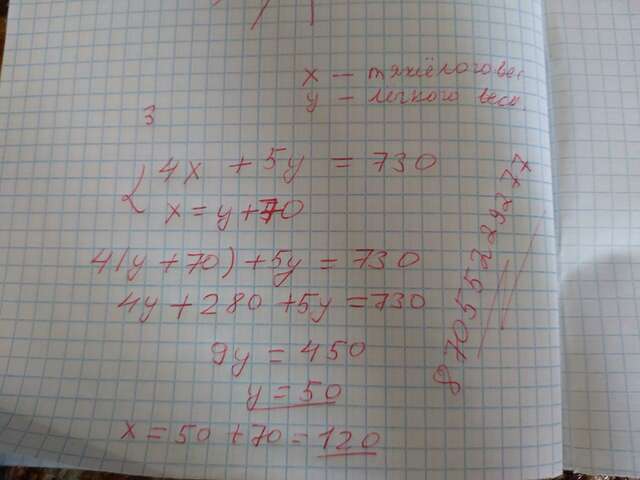 x – тяжёлого вес.
y – легкого веса.
3
{ 4x + 5y = 730
x = y + 70
4(y + 70) + 5y = 730
4y + 280 + 5y = 730
9y = 450
y = 50
x = 50 + 70 = 120
87055229277